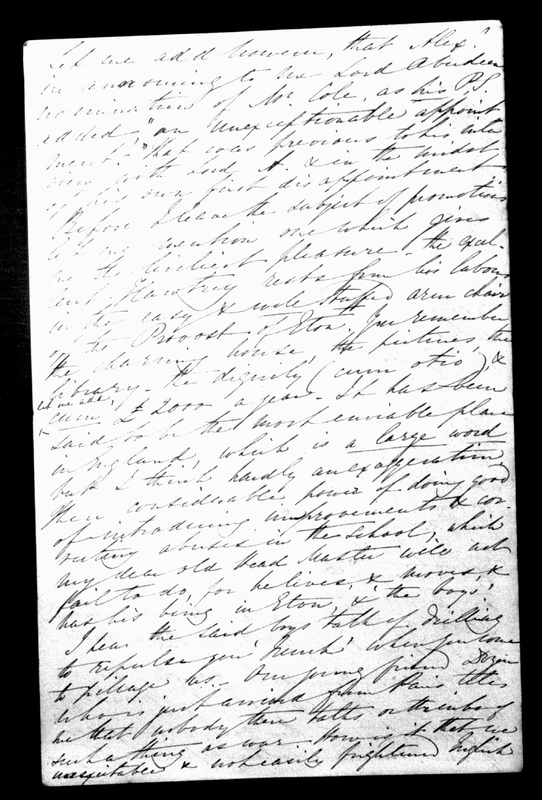 Let me add however, that Alex.r
in announcing to me Lord Aberdeen
nomination of Mr Cole, as his P.S.
added "an unexceptionable appoint
ment." That was previous to his inter
view with Lord A. & in the midst
of his own first disappointment.
Before I leave the subject of promotions
let me mention one which gives
me the liveliest pleasure - the excel-
lent Hawtrey rests from his labours
in the easy & well stuffed arm chair
of the Provost of Eton. You remember
the charming house, the pictures, the
library - the dignity (cum otio) &
let me add,
cum £2000 a year. It has been
said to be the most enviable place
in England, which is a large word
but I think hardly an exaggeration
Then considerable power of doing good
of introducing improvements & cor-
recting abuses in the School, which
my dear old Head Master will not
fail to do, for he lives, & moves, &
has his being in Eton, & 'the boys'.
I hear the said boys talk of drilling
to repulse you 'French' when you come
to pillage us. Our young friend
who is just arrived from Paris tells
me that nobody there talks or thinks of
such a thing as war. How is it that we
unexcitable & not easily frightened English